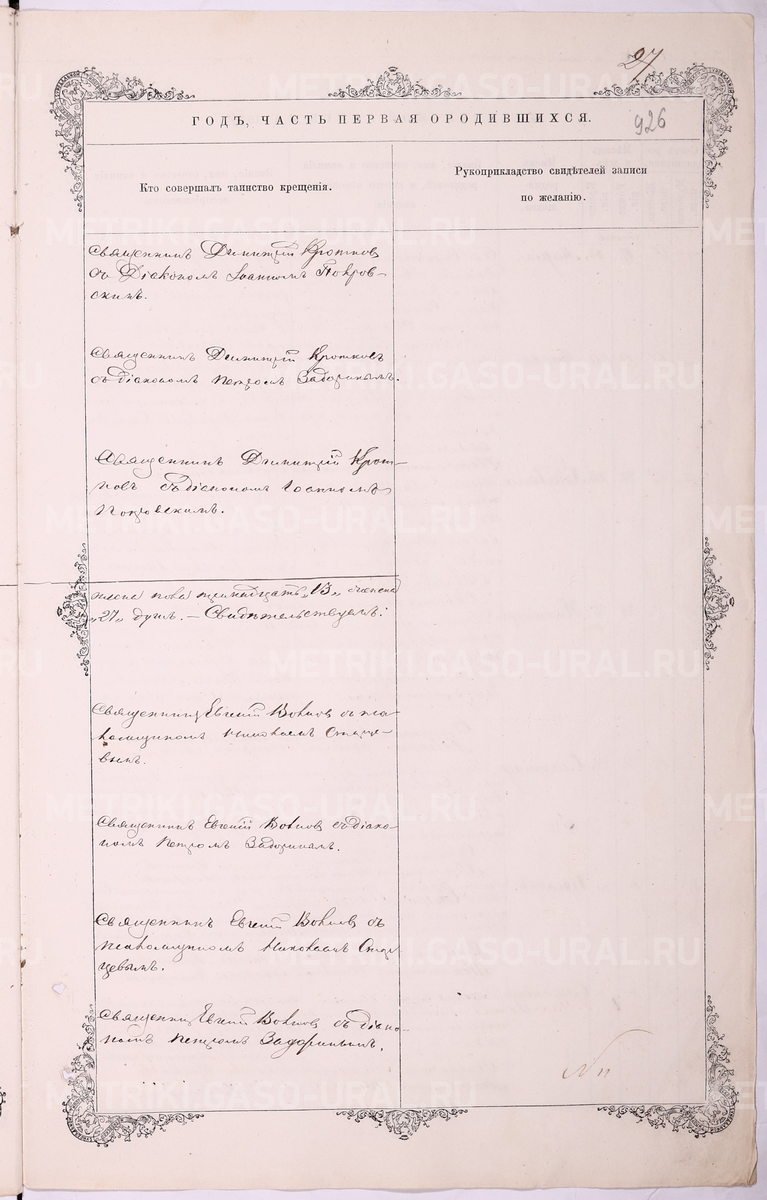 27
926
ГОДЪ, ЧАСТЬ ПЕРВАЯ ОРОДИВШИХСЯ.
Кто совершалъ таинство крещенія.
Рукоприкладство свидѣтелей записи
по желанію.
Священникъ Димитрій Кротковъ
съ Діакономъ Іоанномъ Покров-
скимъ.
Священникъ Димитрій Кротковъ
съ діакономъ Петромъ Задоринымъ.
Священникъ Димитрій Крот-
ковъ съ діакономъ Іоанномъ
Покровскимъ.
пола тринадцать „13“
„27“ душъ. — Свидѣтельствуемъ:
Священникъ Евгеній съ пса-
ломщикомъ Николаемъ Стар-
Священникъ Евгеній съ діако-
номъ Петромъ Задоринымъ.
Священникъ Евгеній съ
псаломщикомъ Николаемъ Стар-
цевымъ.
Священникъ Евгеній съ діако-
номъ Петромъ Задоринымъ.
METRIKI.GASO-URAL.RU